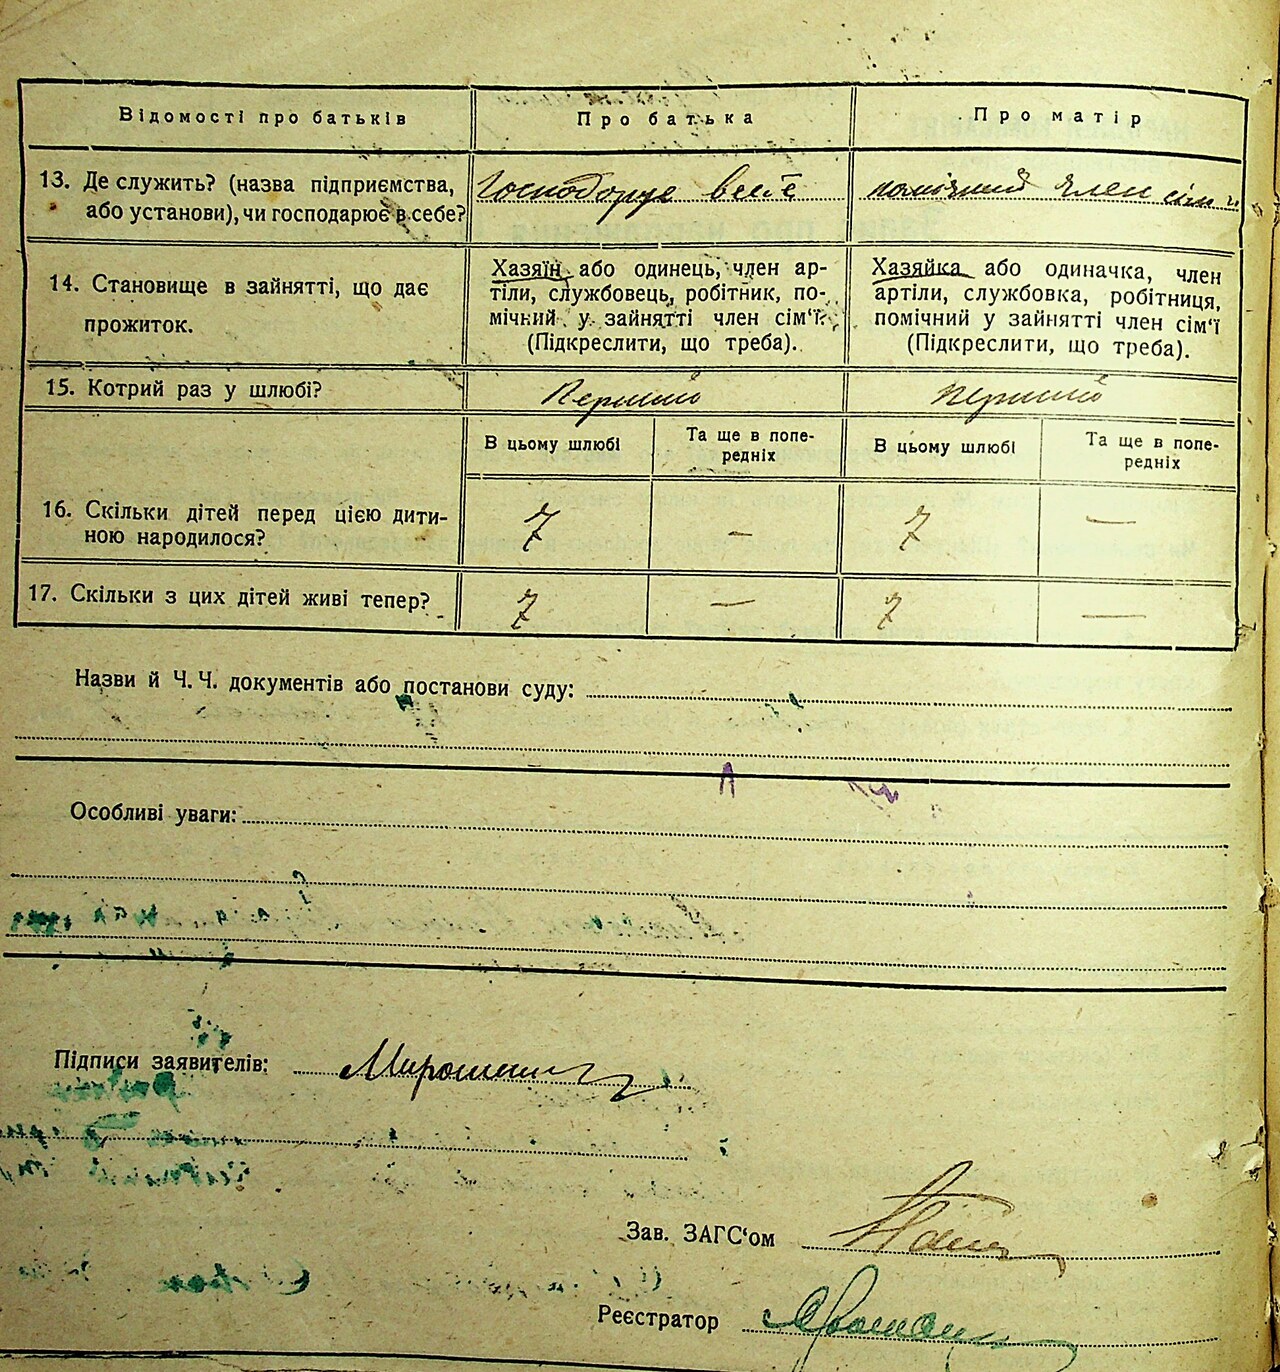 Відомості про батьків
Про батька
Про матір
13. Де служить? (назва підприємства,
або установи), чи господарює в себе?
Господорує в себе
помічний член сім'ї
14. Становище в зайнятті, що дає
прожиток.
Хазяїн або одинець, член ар-
тіли, службовець, робітник, по-
мічний у зайнятті член сім‘ї.
(Підкреслити, що треба).
Хазяйка або одиначка, член
артіли, службовка, робітниця,
помічний у зайнятті член сім‘ї
(Підкреслити, що треба).
15. Котрий раз у шлюбі?
Перший
Перший
В цьому шлюбі
Та ще в попе-
редніх
В цьому шлюбі
Та ще в попе-
редніх
16. Скільки дітей перед цією дити-
ною народилося?
7 — 7 —
17. Скільки з цих дітей живі тепер?
7 — 7 —
Назви й Ч. Ч. документів або постанови суду:
Особливі уваги:
Підписи заявителів:
Зав. ЗАГС‘ом
Реєстратор